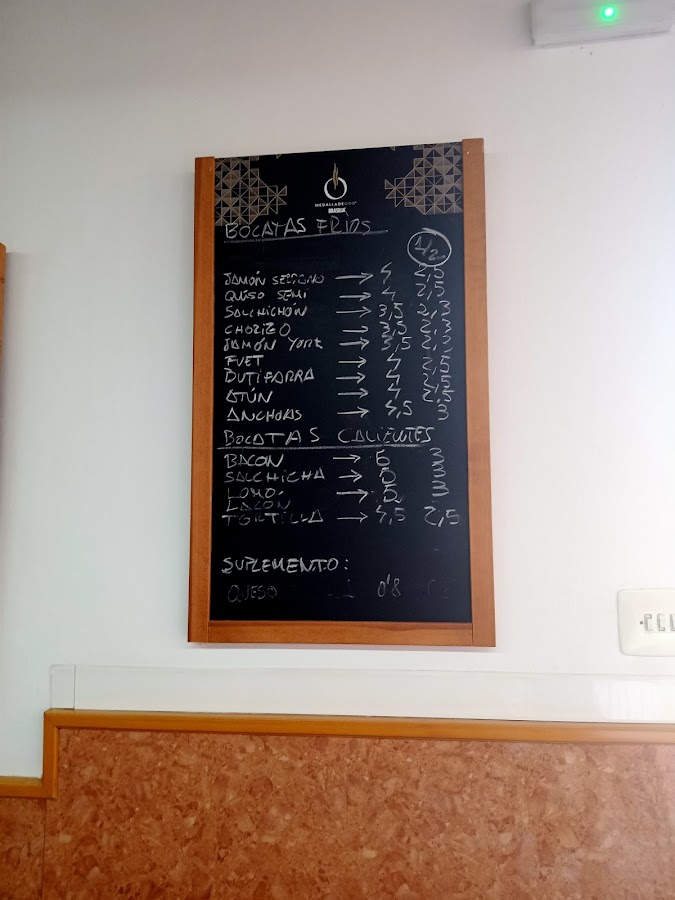 MEDALLA DE ORO
BRASILIA
BOCATAS FRIOS
1/2
JAMÓN SERRANO → 4 2,5
QUESO SEMI → 4 2,5
SALCHICHÓN → 3,5 2,3
CHORIZO → 3,5 2,3
JAMÓN YORK → 3,5 2,3
FUET → 4 2,5
BUTIFARRA → 4 2,5
ATÚN → 4 2,5
ANCHOAS → 4,5 3
BOCATAS CALIENTES
BACON → 5 3
SALCHICHA → 5 3
LOMO → 5 3
LACON
TORTILLA → 4,5 2,5
SUPLEMENTO:
QUESO 0'8